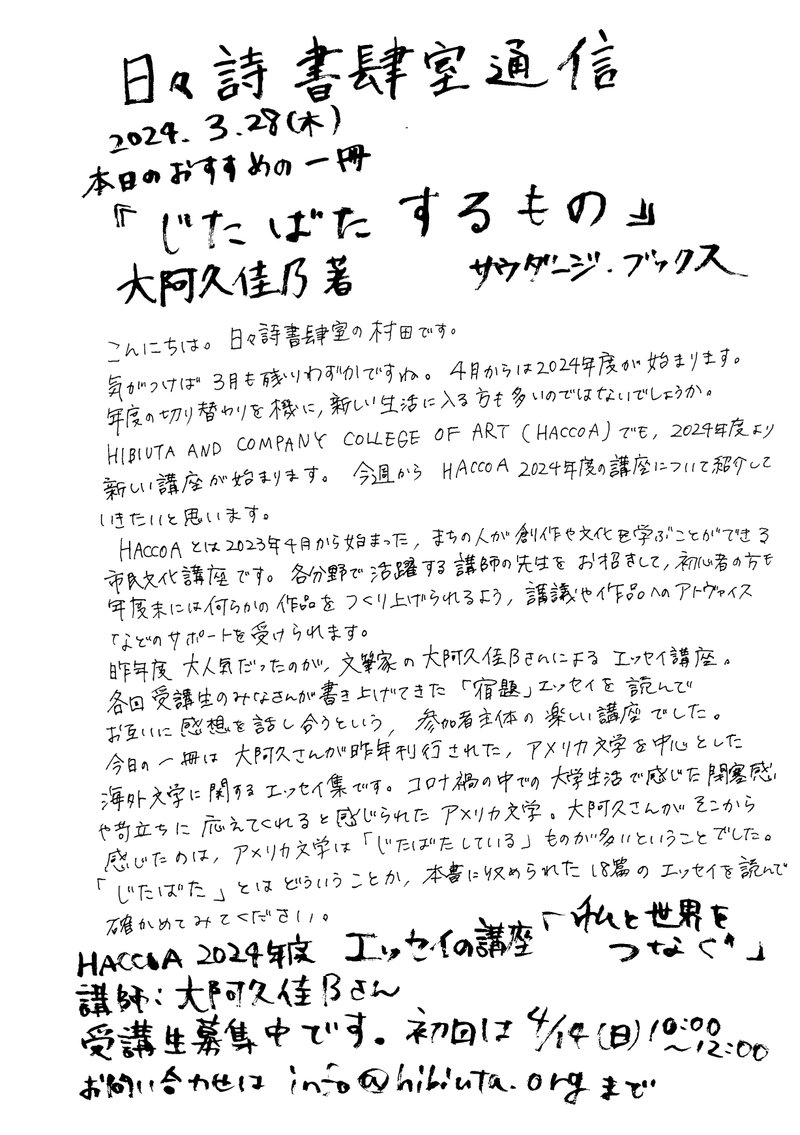 日々詩書肆室通信
2024.3.28(木)
本日のおすすめの一冊
『じたばたするもの』
大阿久佳乃著 サウダージ・ブックス
こんにちは。日々詩書肆室の村田です。
気がつけば3月も残りわずかですね。4月からは2024年度が始まります。
年度の切り替わりを機に,新しい生活に入る方も多いのではないでしょうか。
HIBIUTA AND COMPANY COLLEGE OF ART (HACCOA)でも,2024年度より
新しい講座が始まります。今週から HACCOA 2024年度の講座について紹介して
いきたいと思います。
HACCOAとは2023年4月から始まった,まちの人が創作や文化を学ぶことができる
市民文化講座です。各分野で活躍する講師の先生をお招きして,初心者の方も
年度末には何らかの作品をつくり上げられるよう,講議や作品へのアドヴァイス
などのサポートを受けられます。
昨年度大人気だったのが,文筆家の大阿久佳乃さんによるエッセイ講座。
各回受講生のみなさんが書き上げてきた「宿題」エッセイを読んで
お互いに感想を話し合うという,参加者主体の楽しい講座でした。
今日の一冊は大阿久さんが昨年刊行された,アメリカ文学を中心とした
海外文学に関するエッセイ集です。コロナ禍の中での大学生活で感じた閉塞感
や苛立ちに応えてくれると感じられたアメリカ文学。大阿久さんがそこから
感じたのは,アメリカ文学は「じたばたしている」ものが多いということでした。
「じたばた」とはどういうことか,本書に収められた18篇のエッセイを読んで
確かめてみてください。
HACCOA 2024年度 エッセイの講座「私と世界を
つなぐ」
講師:大阿久佳乃さん
受講生募集中です。初回は4/14(日)10:00
〜12:00
お問い合わせは info@hibiuta.org まで